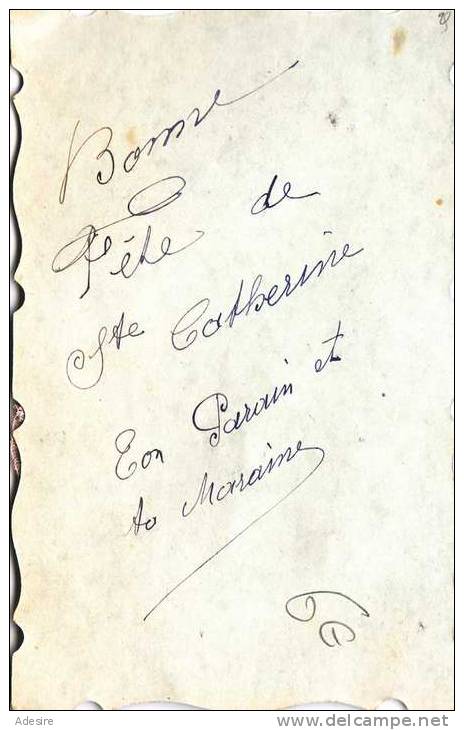 Bonne
Fête de
Ste Catherine
Ton Parain et
ta Maraine
Adesire
delcampe.net